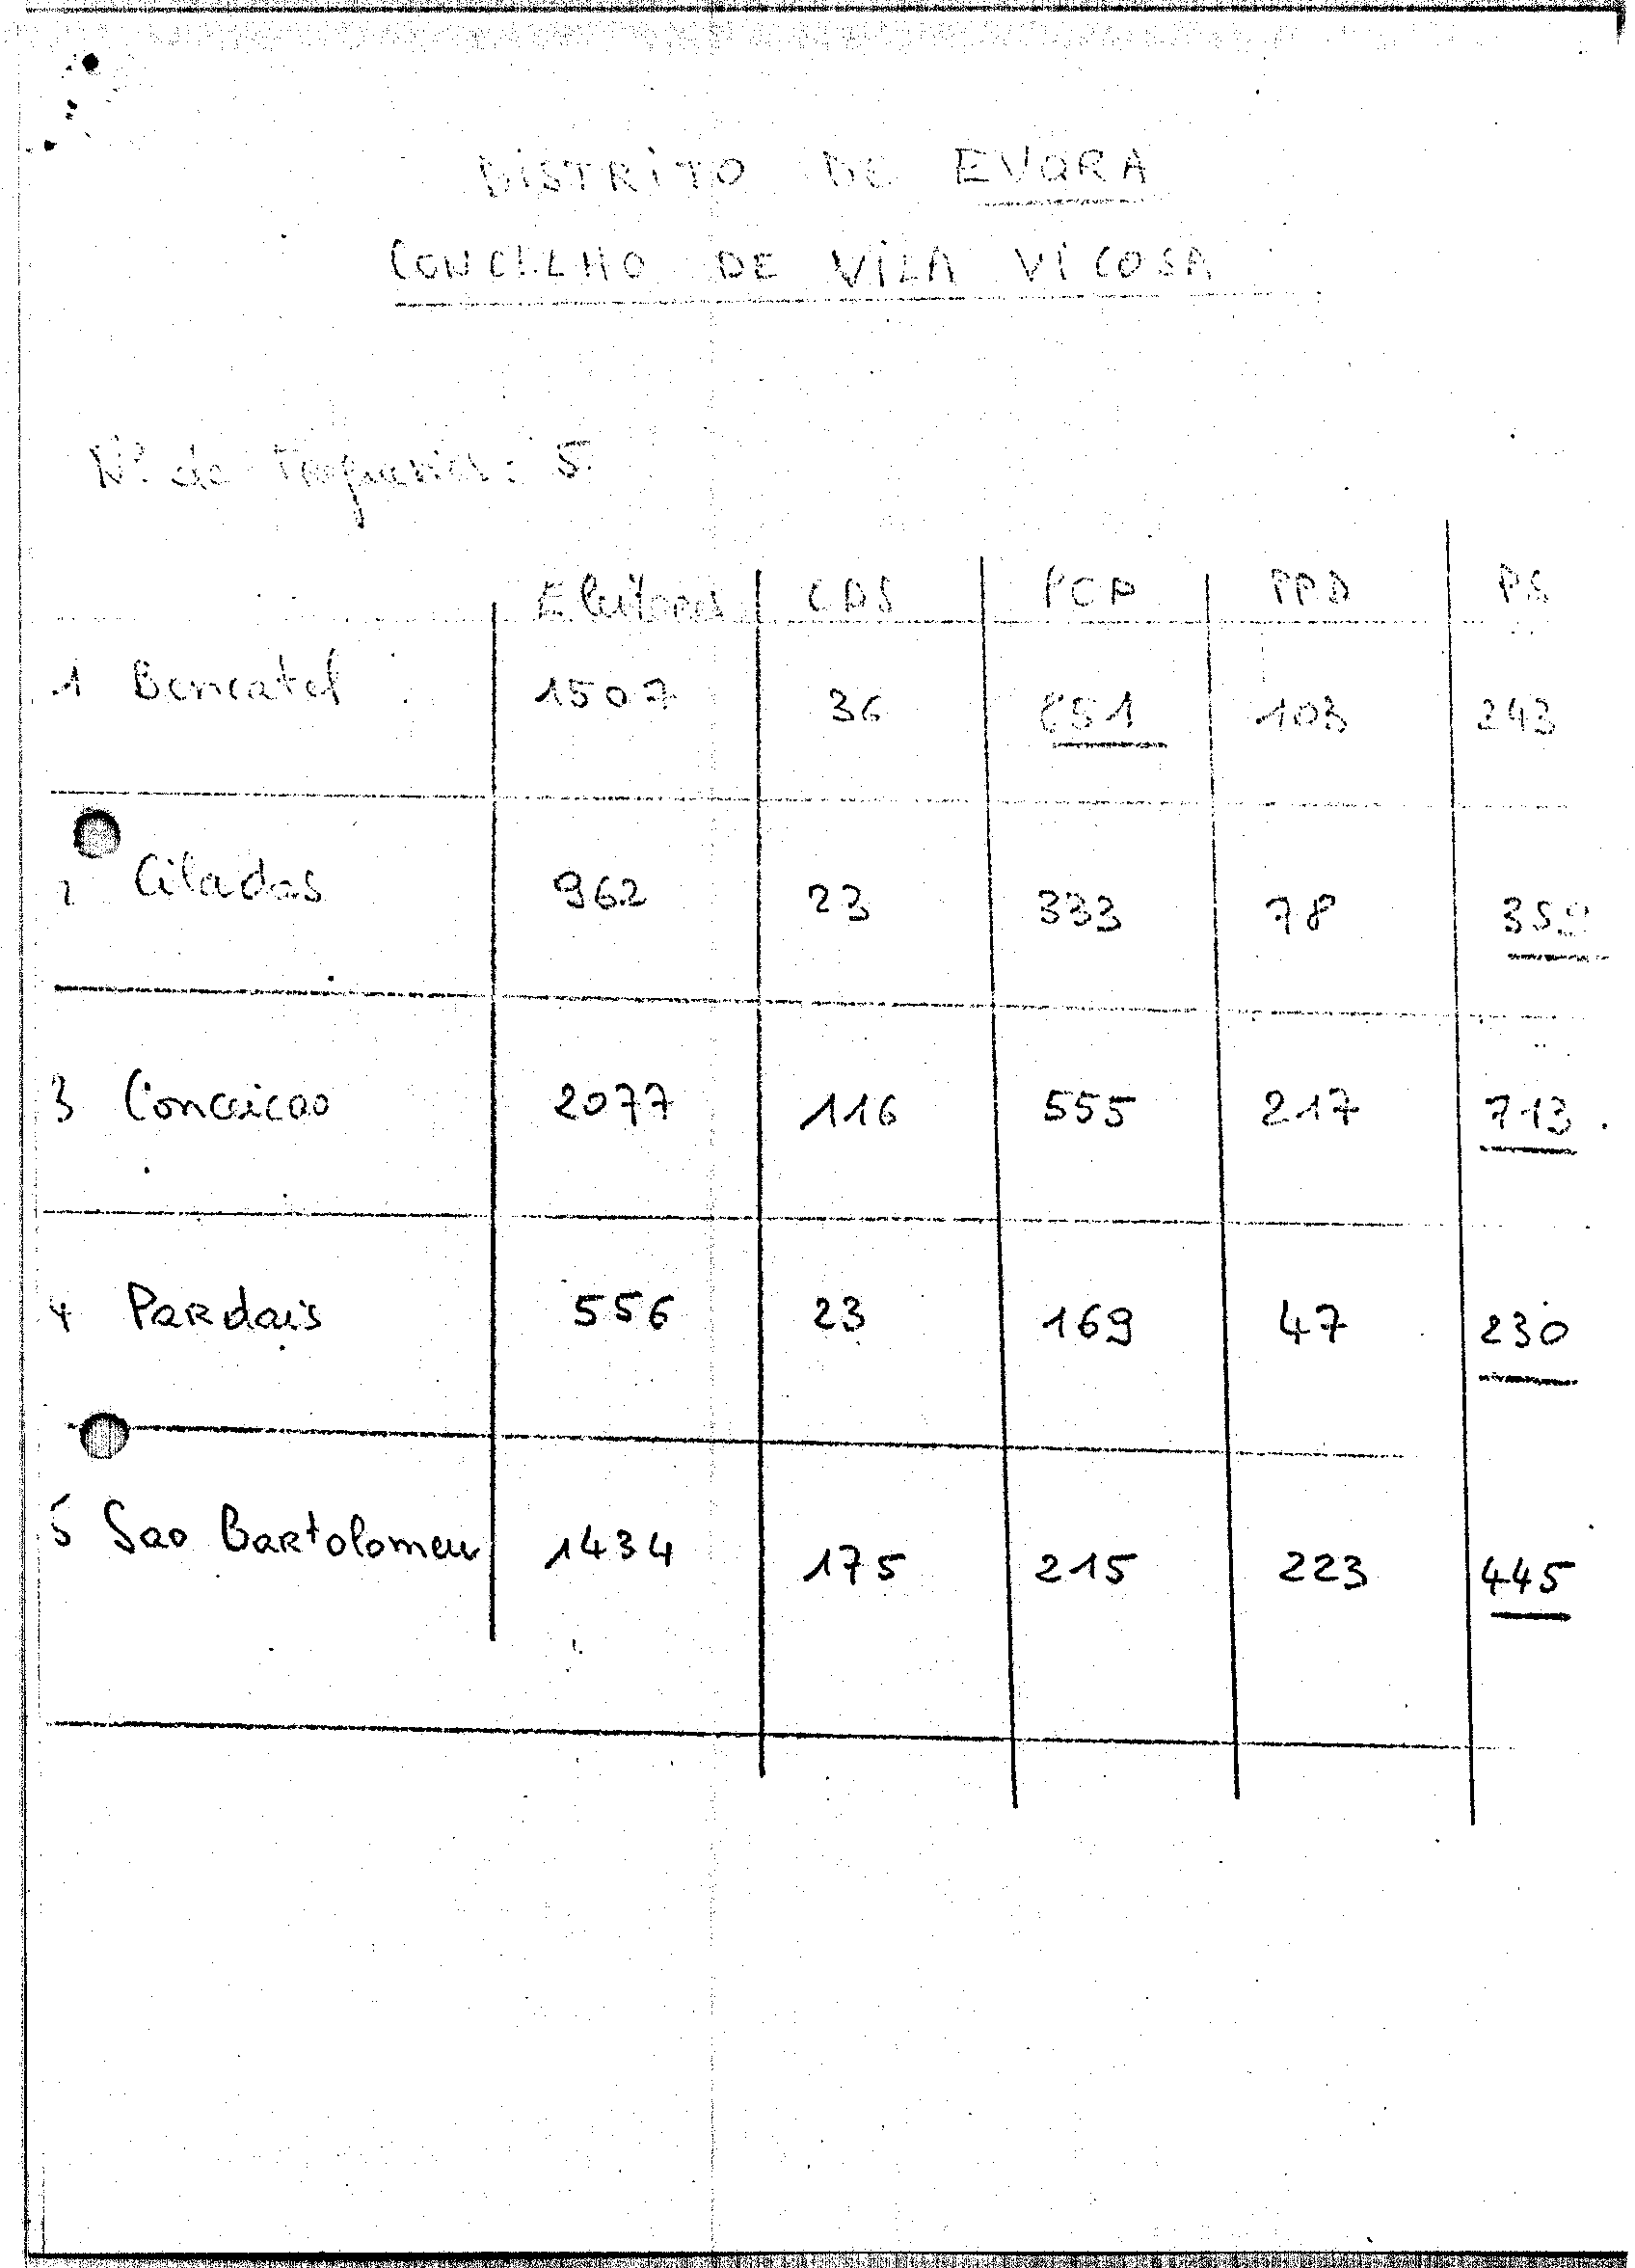 DISTRITO DE EVORA
CONCELHO DE VILA VICOSA
Nº de freguesias: 5
Eleitores CDS PCP PPD PS
1 Bencatel 1507 36 851 103 243
2 Ciladas 962 23 333 78
3 Conceicao 2077 116 555 217 713
4 Pardais 556 23 169 47 230
5 Sao Bartolomeu 1434 175 215 223 445